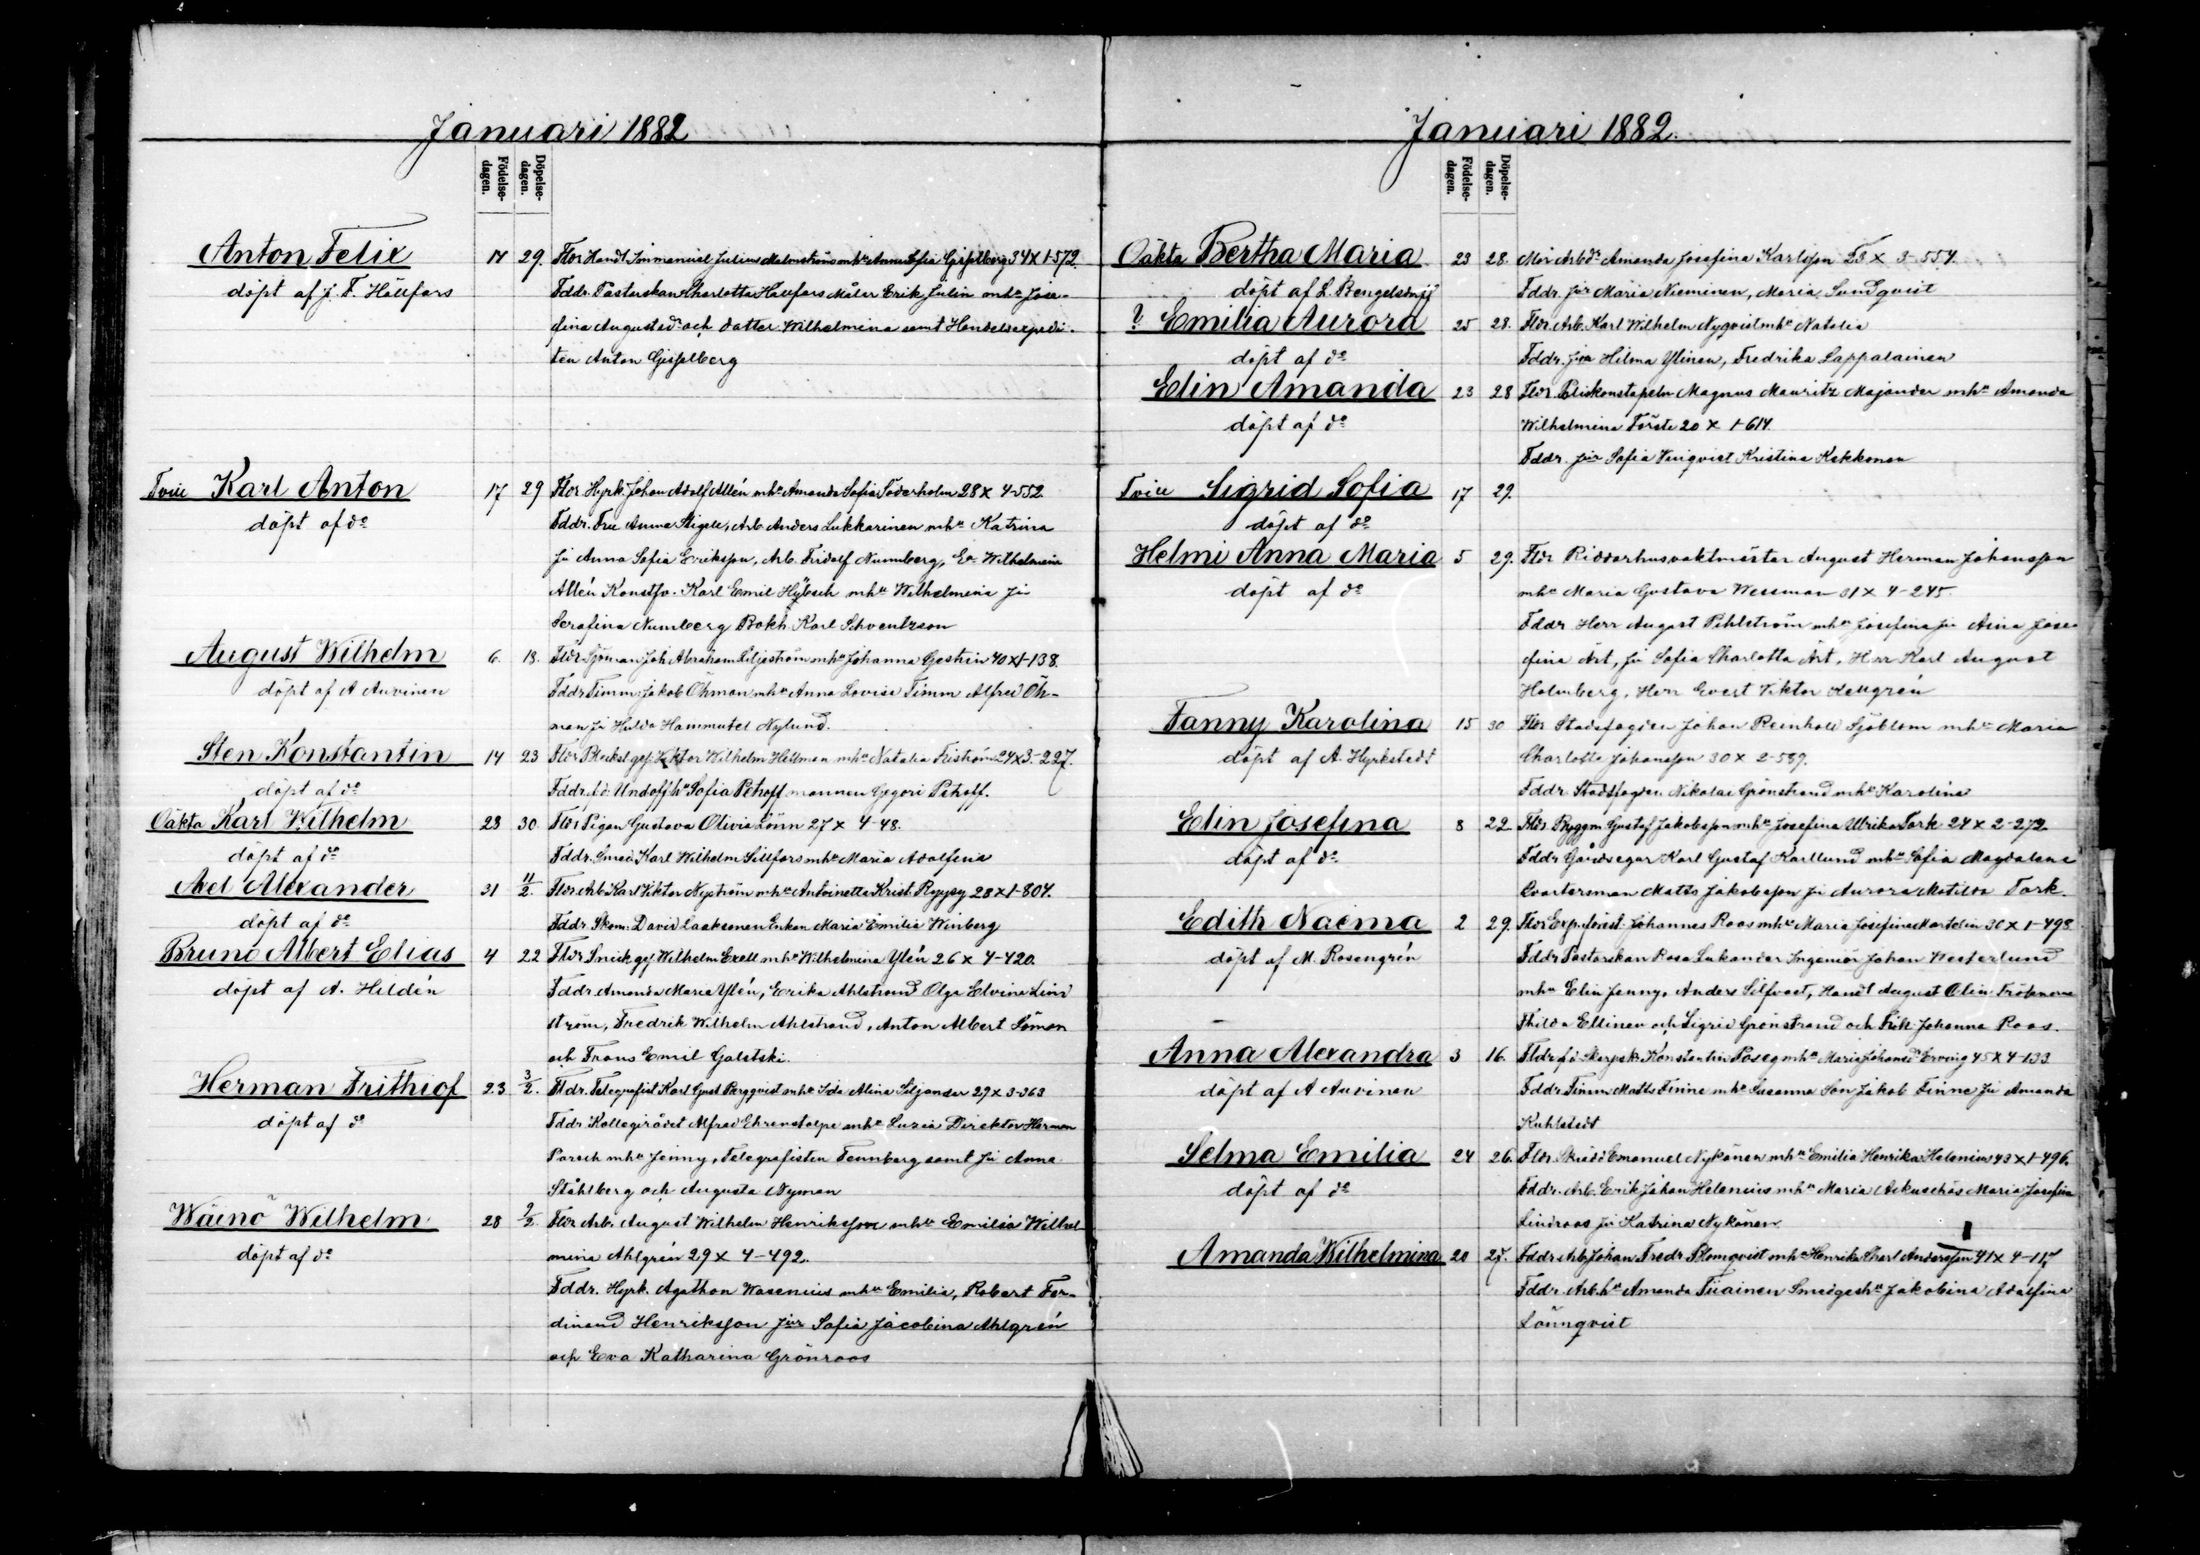 Januari 1882
Födelse-dagen.
Döpelse-dagen.
Anton Felix 17 29. Fldr Handl. Immanuel Julius Malmström mhu Anna Sofia Gisselberg 34 x 1-572.
döpt af J. F. Hällfors Fddr. Pastorskan Charlotta Hällfors Målar Erik Julin mhu Jose-
fina Augusta dr och dotter Wilhelmina samt Handelsexpedi-
ten Anton Gisselberg
Tvill Karl Anton 17 29 Fldr Hyrk. Johan Adolf Allén mhu Amanda Sofia Söderholm 28 x 4-552
döpt af do Fddr. Fru Anna Stigell, Arb. Anders Lukkarinen mhu Katrina
Ju Anna Sofia Eriksson, Arb. Fridolf Numberg, Ev. Wilhelmina
Allén Konstfv. Karl Emil Hybsch mhu Wilhelmina Ju
Serafina Numberg Bokh. Karl Schventzson
August Wilhelm 6. 18. Fldr Sjöman Joh. Abraham Liljeström mhu Johanna Gestrin 40 x 1-138.
döpt af A Auvinen Fddr Timm. Jakob Öhman mhu Anna Lovisa Timm Alfred Öh-
man Ju Hilda Hammutel Nylund.
Sten Konstantin 14 23 Fldr Bleckslgs. Viktor Wilhelm Hellman mhu Natalia Fiström 24 x 3-227.
döpt af do Fddr. Undoff. hu Sofia Petroff mannen Gregori Petroff.
Oäkta Karl Wilhelm 23 30. Fldr Pigan Gustava Olivia Lönn 27 x 4-48.
döpt af do Fddr. Smed. Karl Wilhelm Sillfors mhu Maria Adolfina
Axel Alexander 31 11/2. Fldr Arb. Karl Viktor Nyström mhu Antoinetta Krist. Ryypy 28 x 1-804.
döpt af do Fddr Skom. David Laaksonen Enkan Maria Emilia Winberg
Bruno Albert Elias 4 22 Fldr Snick.gs. Wilhelm Exell mhu Wilhelmina Ylén 26 x 4-420.
döpt af A. Heldén Fddr. Amanda Maria Ylén, Erika Ahlstrand Olga Elvira Lind
ström, Fredrik Wilhelm Ahlstrand, Anton Albert Söman
och Frans Emil Galetski.
Herman Frithiof 23 3/2. Fldr. Telegrafist Karl Gust Bergqvist mhu Ida Alina Siljander 29 x 3-363
döpt af do Fddr Kollegirådet Alfred Ehrenstolpe mhu Luzia Direktor Herman
Parsch mhu Jenny, Telegrafisten Tennberg samt Ju Anna
Ståhlberg och Augusta Nyman
Wäinö Wilhelm 28 9/2. Fldr Arb. August Wilhelm Henriksson mhu Emilia Wilhel-
döpt af do mina Ahlgrén 29 x 4-492.
Fddr. Hyrk. Agathon Wasenius mhu Emilia, Robert Fer-
dinand Henriksson Jur Sofia Jacobina Ahlgrén
och Eva Katharina Grönroos
Januari 1882.
Födelse-dagen.
Döpelse-dagen.
Oäkta Bertha Maria 23 28. Mor Arbda Amanda Josefina Karlsson 53 x 3-554.
döpt af L. Bengelsdorff Fddr. Jur Maria Nieminen, Maria Sundqvist
? Emilia Aurora 25 28. Fldr. Arb. Karl Wilhelm Nyqvist mhu Natalia
döpt af do Fddr. Jur Hilma Ylinen, Fredrika Lappalainen
Elin Amanda 23 28 Fldr. Poliskonstapeln Magnus Mauritz Majander mhu Amanda
döpt af do Wilhelmina Förste 20 x 1-614.
Fddr. Jur Sofia Winqvist Kristina Kekkonen
Tvill Sigrid Sofia 17 29.
döpt af do
Helmi Anna Maria 5 29. Fldr Riddarhusvaktmästar August Herman Johansson
döpt af do mhu Maria Gustava Wessman 31 x 4-245
Fddr Herr August Pihlström mhu Josefina Ju Aina Jose-
fina Ärt, Ju Sofia Charlotta Ärt, Herr Karl August
Holmberg, Herr Evert Viktor Kellgrén
Fanny Karolina 15 30 Fldr Stadsfogden Johan Reinhold Sjöblom mhu Maria
döpt af A. Hyrkstedt Charlotta Johansson 30 x 2-589.
Fddr. Stadsfogden Nikolai Grönstrand mhu Karolina
Elin Josefina 8 22. Fldr. Byggm. Gustaf Jakobsson mhu Josefina Ulrika Tork 24 x 2-272
döpt af do Fddr Gårdsegar Karl Gustaf Karllund mhu Sofia Magdalena
Qvartersman Matts Jakobsson Ju Aurora Matilda Tork.
Edith Naëma 2 29. Fldr Exp. forist. Johannes Roos mhu Maria Josefina Martelin 30 x 1-498
döpt af M. Rosengrén Fddr Pastorskan Rosa Lukander Ingeniör Johan Westerlund
mhu Elin Jenny, Anders Silfvast, Handl August Olin Fröknarna
Thilda Ellinen och Sigrid Grönstrand och Frök. Johanna Roos.
Anna Alexandra 3 16. Fldr f.d. Skarpsk. Konstantin Poseg mhu Maria Johansdr Erving 45 x 4-133
döpt af A Auvinen Fddr. Timm Matts Finne mhu Susanna Son Jakob Finne Ju Amanda
Kuhlstedt
Selma Emilia 24 26. Fldr. Skrädd Emanuel Nykänen mhu Emilia Henrika Helenius 43 x 1-496.
döpt af do Fddr. Arb. Erik Johan Helenius mhu Maria Maria Josefina
Lindroos Ju Katrina Nykänen
Amanda Wilhelmina 20 27. Fddr Arb Johan Fredr. Blomqvist mhu Henrika Charl Andersson 41 x 4-117
Fddr. Arb.hu Amanda Tiiainen Smedgeshu Jakobina Adolfina
Lönnqvist